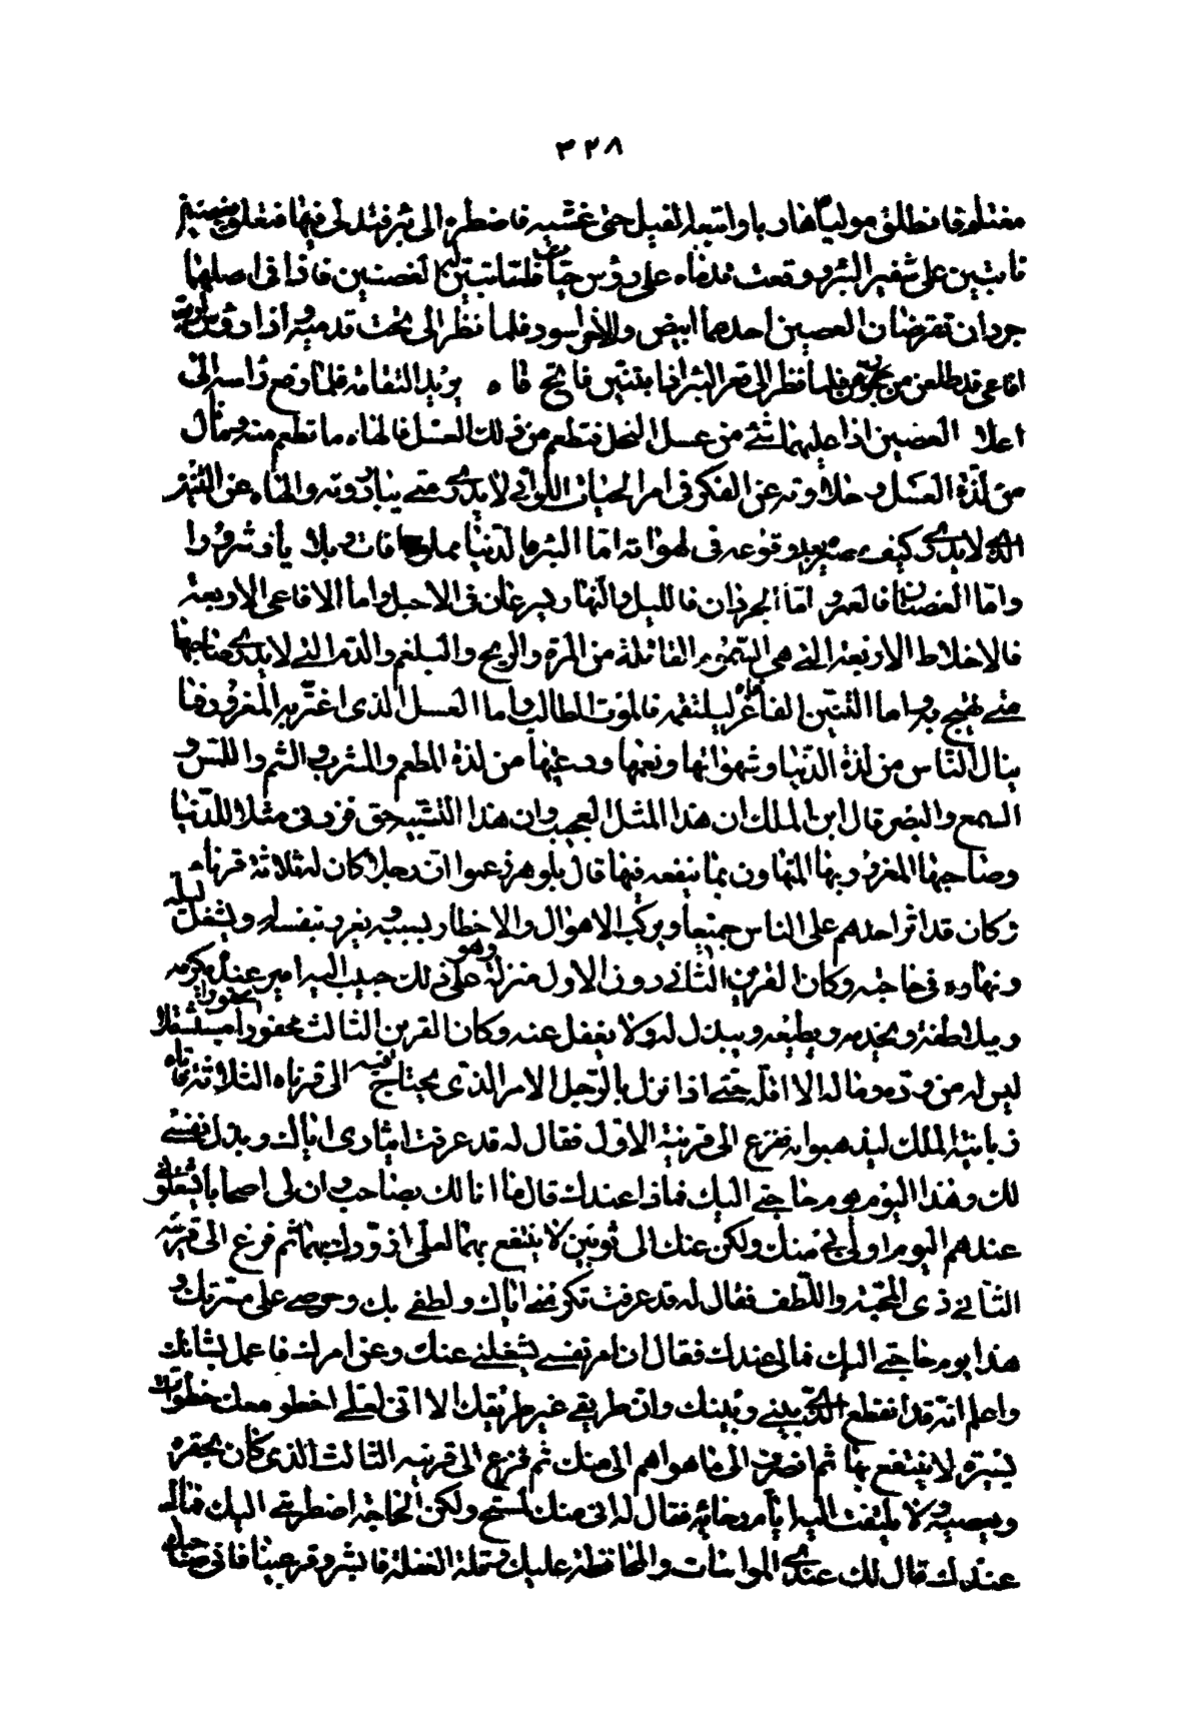 ٣٢٨
مغتلم فانطلق موليا هاربا واتبعه الفيل حتى غشيه فاضطره الى بئر فتدلى فيها وتعلق بغصنين
نابتين على شفير البئر ووقعت قدماه على رؤس حيات فلما تبين له الغصنين فاذا في اصلهما
جردان تقرضان الغصنين احدهما ابيض والاخر اسود فلما نظر الى تحت قدميه اذا رؤس اربع
افاعي قد طلعن من جحرهن فلما نظر الى قعر البئر اذا بتنين فاتح فاه يريد التقامه فلما رفع راسه الى
اعلا الغصنين اذا عليهما شئ من عسل النحل فتطعم من ذلك العسل فالهاه ما تطعم منه وما نال
من لذة العسل وحلاوته عن الفكر في امر الحيات اللواتي لا يدري متى يبادرونه والهاه عن التنين
الذي لا يدري كيف مصيره بعد وقوعه في لهواته اما البئر فالدنيا مملوة افات وبلايا وشرورا
واما الغصنان فالعمر و اما الجرذان فالليل والنهار يسرعان في الاجل واما الافاعي الاربعة
فالاخلاط الاربعة التي هي السموم القاتلة من المرة والريح والبلغم والدم التي لا يدري صاحبها
متى تهيج به واما التنين الفاغر فاه ليلتقمه فالموت الطالب واما العسل الذي اغتر به المغرور فما
ينال الناس من لذة الدنيا وشهواتها ونعيمها ودعتها من لذة المطعم والمشرب والشم واللمس و
السمع والبصر قال ابن الملك ان هذا المثل لعجب وان هذا التشبيه حق فزدني مثلا للدنيا
وصاحبها المغرور بها المتهاون بما ينفعه فيها قال بلوهر زعموا ان رجلا كان له ثلاثة قرناء
وكان قد اثر احدهم على الناس جميعا ويركب الاهوال والاخطار بسببه ويغرر بنفسه له ويشغل ليله
ونهاره في حاجته وكان القرين الثاني دون الاول منزلة وهو على ذلك حبيب اليه امير عنده يكرمه
ويلاطفه ويخدمه ويطيعه ويبذل له ولا يغفل عنه وكان القرين الثالث محقورا مستثقلا
ليس له من وده وماله الا اقله حتى اذا نزل بالرجل الامر الذي يحتاج فيه الى قرنائه الثلاثة فاتاه
زبانية الملك ليذهبوا به ففزع الى قرينه الاول فقال له قد عرفت ايثاري اياك وبذل نفسي
لك وهذا اليوم يوم حاجتي اليك فماذا عندك قال ما انا لك بصاحب وان لي اصحابا يشغلوني
عندهم اليوم اولى بي منك ولكن عندي لك ثوبين لا ينتفع بهما لعلي ازودك بهما ثم فزع الى قرينه
الثاني ذي المحبة واللطف فقال له قد عرفت تكرمتي اياك ولطفي بك وحرصي على مسرتك و
هذا يوم حاجتي اليك فمالي عندك فقال ان امر نفسي يشغلني عنك وعن امرك فاعمل لشانك
واعلم انه قد انقطع الذي بيني وبينك وان طريقي غير طريقك الا اني لعلي اخطو معك خطوات
يسيرة لا ينتفع بها ثم انصرف الى ما هو اهم الى منك ثم فزع الى قرينه الثالث الذي كان يحقره
ويعصيه ولا يلتفت اليه ايام رخائه فقال له اني منك لمستح ولكن الحاجة اضطرتني اليك فمالي
عندك قال لك عندي المواسات والمحافظة عليك وقلة الغفلة فابشر وقر عينا فاني صاحبك